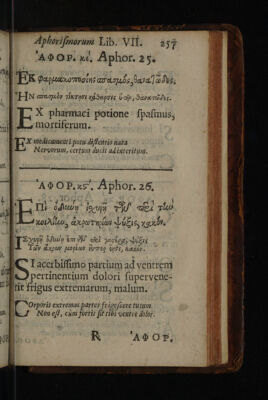 Aphorismorum Lib. VII. 257
ἈΦΟΡ. κέ. Aphor. 25.
ἘΚ φαρμακοποσίης σπασμὸς, θανατῶδες.
EX pharmaci potione spasmus,
mortiferum.
EX medicamenti potu distentio nata
Nervorum, certum ducit ad interitum.
ἈΦΟΡ. κϛ. Aphor. 26.
ἘΠὶ ὀδύνῃ ἰσχυρῇ τῶν περὶ τὴν
κοιλίην, ἀκρωτηρίων ψύξις, κακόν.
SI acerbissimo partium ad ventrem
pertinentium dolori supervene-
rit frigus extremarum, malum.
Corporis extremas partes frigescere tutum
Non est, cum fortis sit tibi ventre dolor.
R ἈΦΟΡ.